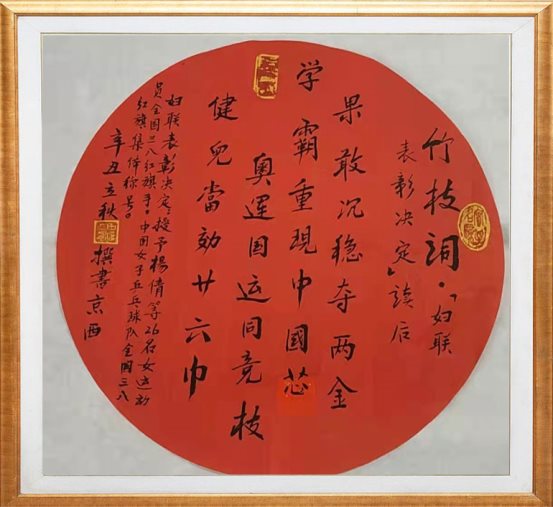 竹枝词·「妇联
表彰决定」读后
果敢沉稳夺两金
学霸重现中國芯
奥运国运同竞技
健兒當効廿六巾
妇联表彰决定：授予楊倩等26名女运动
员全国三八红旗手。中国女子乒乓球队全国三八
红旗集体称号。
辛丑立秋 撰書京西